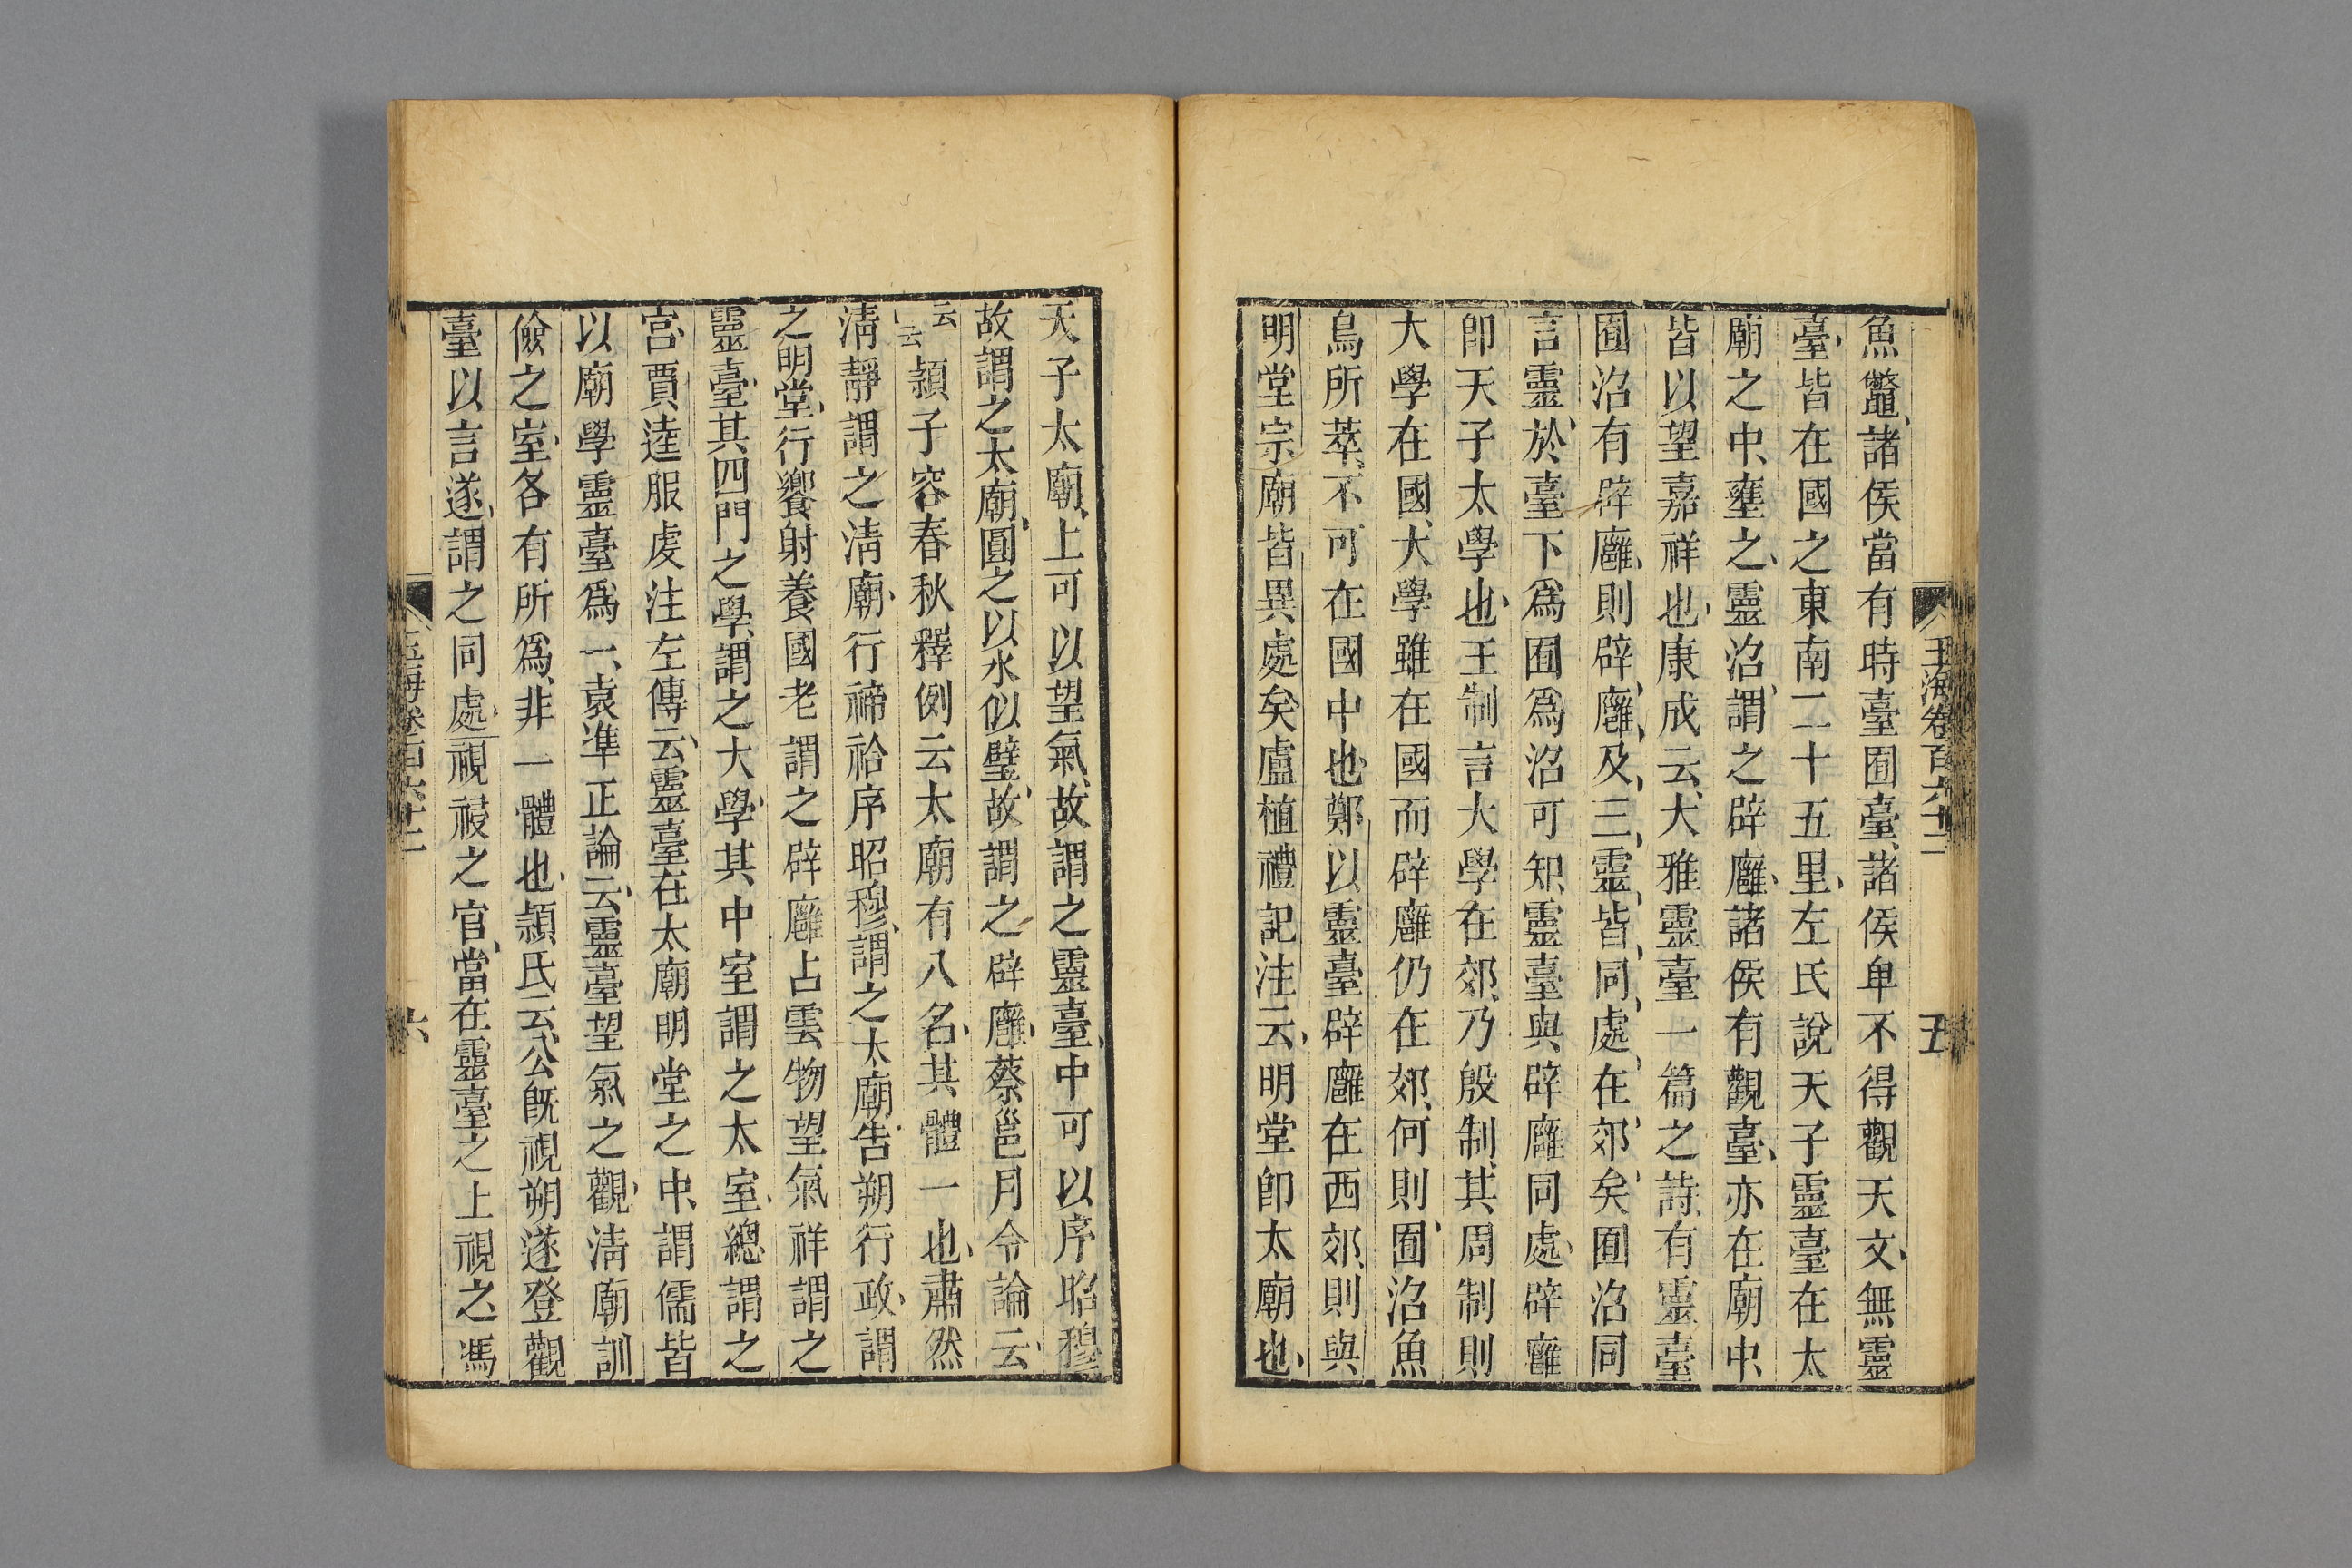 玉海卷百六十二 五
魚鼈、諸侯當有時臺囿臺、諸侯卑不得觀天文、無靈
臺、皆在國之東南二十五里、左氏說天子靈臺在太
廟之中、壅之、靈沼、謂之辟廱、諸侯有觀臺、亦在廟中、
皆以望嘉祥也、康成云、大雅靈臺一篇之詩、有靈臺
囿沼有辟廱、則辟廱、及、三、靈、皆、同、處、在、郊、矣、囿沼同
言靈、於、臺下爲囿爲沼可知、靈臺與辟廱同處、辟廱
卽天子太學也、王制言大學在郊、乃殷制、其周制則
大學在國、大學雖在國而辟廱仍在郊、何則、囿沼魚
鳥所萃、不可在國中也、鄭以靈臺辟廱在西郊、則與
明堂宗廟皆異處矣、盧植禮記注云、明堂卽太廟也、
天子太廟、上可以望氣、故謂之靈臺、中可以序昭穆
故謂之太廟、圓之以水似璧、故謂之辟廱、蔡邕月令論云、
云云 潁子容春秋釋例云太廟有八名、其體一也、肅然
淸靜謂之淸廟、行禘祫序昭穆、謂之太廟、告朔行政、謂
之明堂、行饗射養國老謂之辟廱占雲物望氣祥謂之
靈臺、其四門之學、謂之大學、其中室謂之太室、總謂之
宮、賈逵服虔注左傳云、靈臺在太廟明堂之中、謂儒皆
以廟學靈臺爲一、袁準正論云、靈臺望氣之觀、淸廟訓
儉之室、各有所爲、非一體也、潁氏云、公旣視朔遂登觀
臺以言遂、謂之同處、視祲之官、當在靈臺之上視之、馮
玉海卷百六十二 六